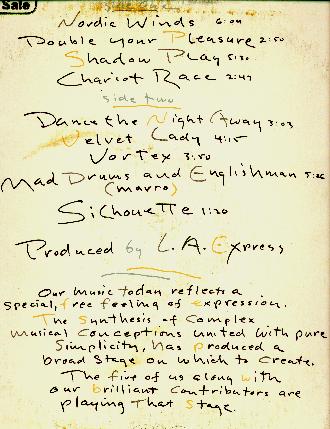 Sale
side one
Nordic Winds 6:04
Double your Pleasure 2:50
Shadow Play 5:30
Chariot Race 2:47
side two
Dance the Night Away 3:03
Velvet Lady 4:15
Vortex 3:50
Mad Drums and Englishman 5:26
(mavro)
Silhouette 1:20
Produced by L.A. Express
Our music today reflects a
special, free feeling of expression.
The synthesis of complex
musical conceptions united with pure
simplicity, has produced a
broad stage on which to create.
The five of us along with
our brilliant contributors are
playing that stage.